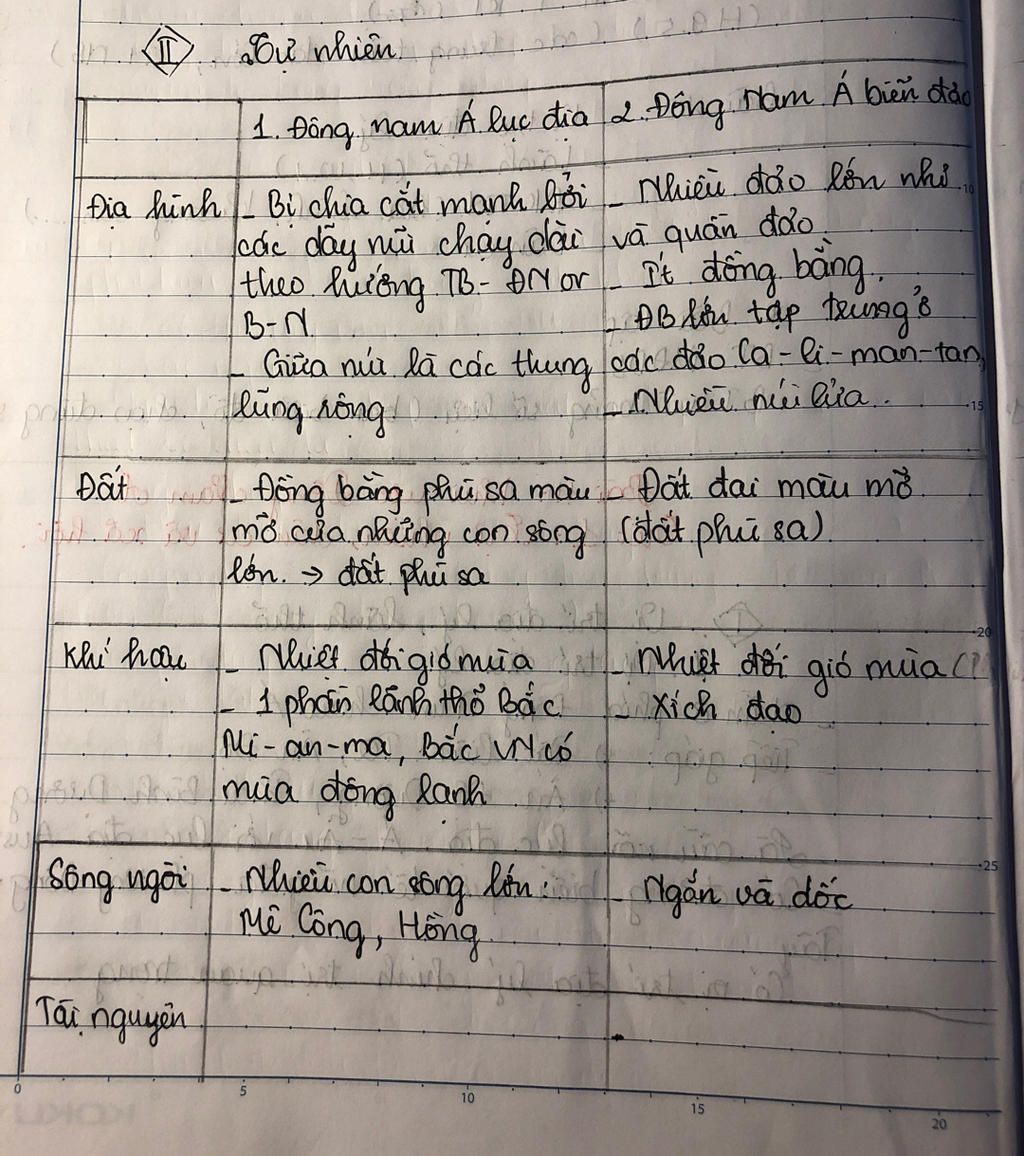 II Tự nhiên
1. Đông nam Á lục địa
2. Đông Nam Á biển đảo
Địa hình
- Bị chia cắt mạnh bởi
các dãy núi chạy dài
theo hướng TB - ĐN or
B-N
- Giữa núi là các thung
lũng sông
- Nhiều đảo lớn nhỏ
và quần đảo
- Ít đồng bằng.
- ĐB lớn tập trung ở
các đảo Ca-li-man-tan,
- Nhiều núi lửa.
Đất
- Đồng bằng phù sa màu
mỡ của những con sông
lớn. → đất phù sa
- Đất đai màu mỡ
(đất phù sa)
Khí hậu
- Nhiệt đới gió mùa
- 1 phần lãnh thổ Bắc
Mi-an-ma, Bắc VN có
mùa đông lạnh
- Nhiệt đới gió mùa (?
- Xích đạo
Sông ngòi
- Nhiều con sông lớn:
Mê Công, Hồng
- Ngắn và dốc
Tài nguyên
10
15
20
25
0 5 10 15 20